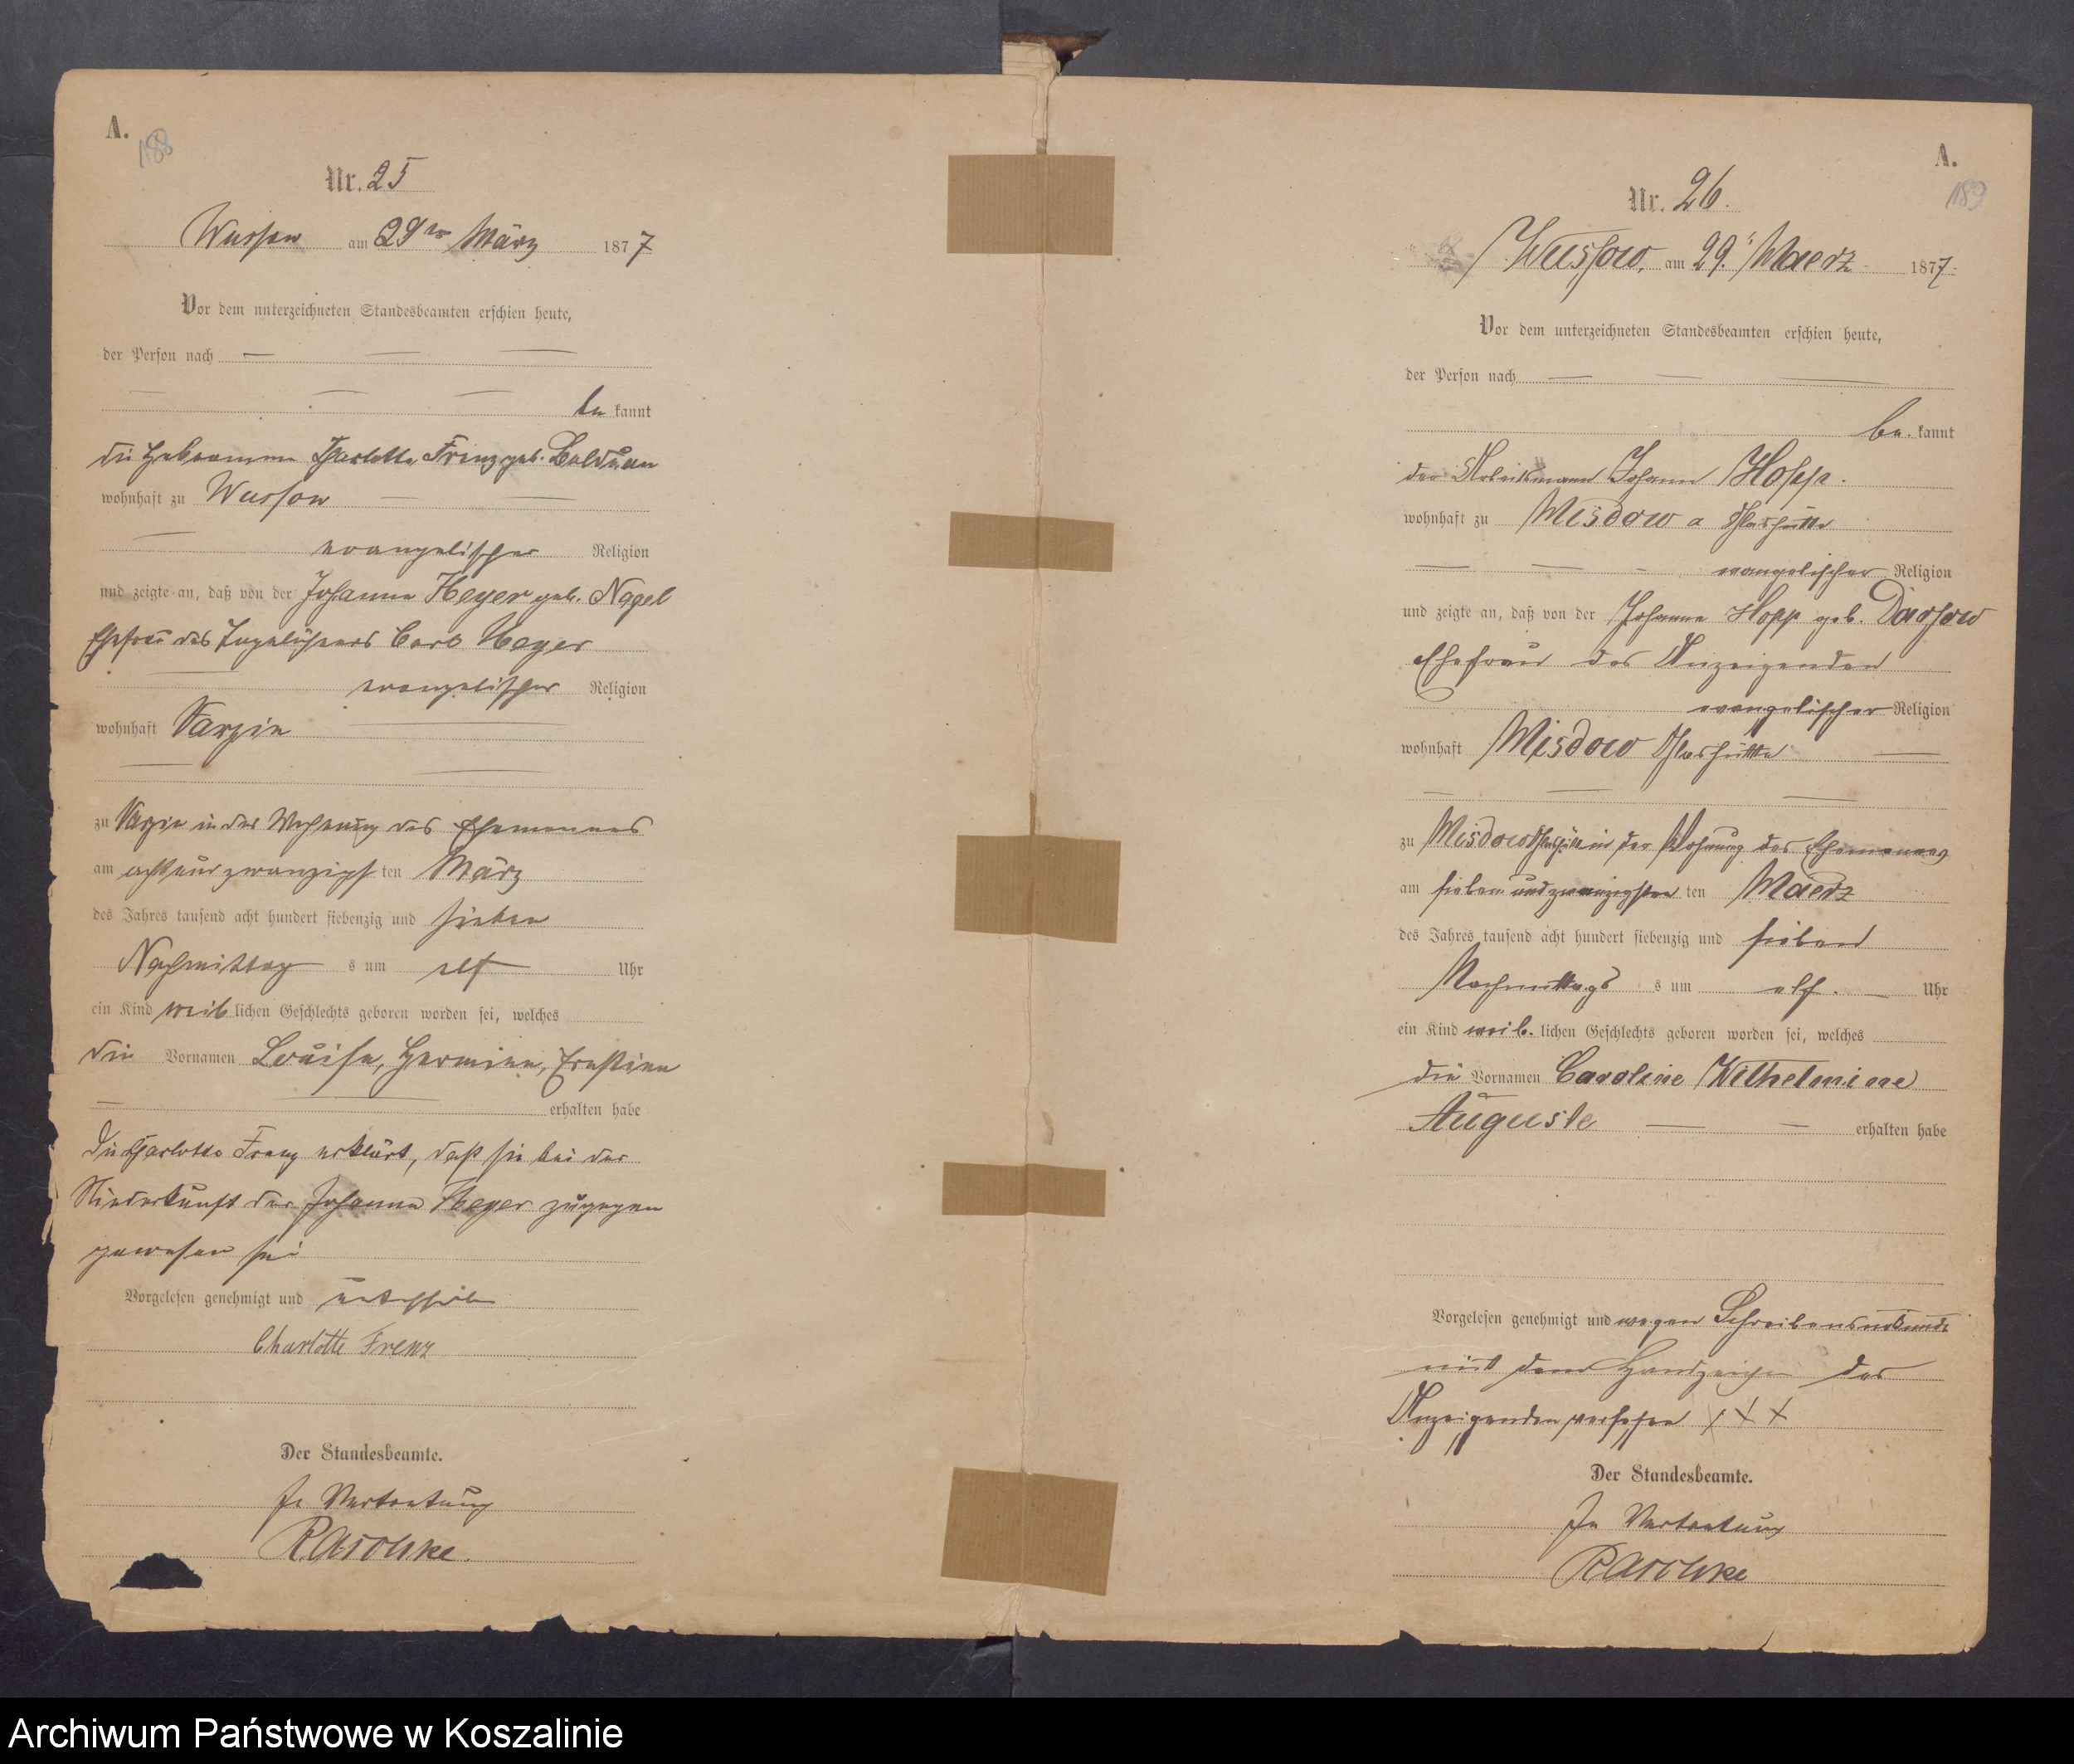 A.
188
Nr. 25
Wussow am 29ten März 1877
Vor dem unterzeichneten Standesbeamten erschien heute,
der Person nach
be kannt
die Hebamme Charlotte Frenz geb. Balduan
wohnhaft zu Wussow
evangelischer Religion
und zeigte an, daß von der Johanna Heyer geb. Nagel
Ehefrau des Carl Heyer
evangelischer Religion
wohnhaft Varzin
zu Varzin in der Wohnung des Ehemannes
am acht und zwanzigsten März
des Jahres tausend acht hundert siebenzig und sieben
Nachmittag s um elf Uhr
ein Kind weib lichen Geschlechts geboren worden sei, welches
die Vornamen Louise, Hermine, Ernstine
erhalten habe
Die Charlotte Frenz erklärt, daß sie bei der
Niederkunft der Johanna Heyer zugegen
gewesen sei
Vorgelesen genehmigt und
Charlotte Frenz
Der Standesbeamte.
In Vertretung
Raschke.
A.
189
Nr. 26.
Wussow, am 29. Maerz 1877.
Vor dem unterzeichneten Standesbeamten erschien heute,
der Person nach
be. kannt
der Arbeitsmann Johann Hopp.
wohnhaft zu Misdow a Glashütte
evangelischer Religion
und zeigte an, daß von der Johanna Hopp geb. Darsow
Ehefrau des Anzeigenden
evangelischer Religion
wohnhaft Misdow Glashütte
zu Misdow Glashütte in der Wohnung des Ehemannes
am sieben und zwanzigsten ten Maerz
des Jahres tausend acht hundert siebenzig und sieben
Nachmittags s um elf. Uhr
ein Kind weib. lichen Geschlechts geboren worden sei, welches
die Vornamen Caroline Wilhelmine
Auguste erhalten habe
Vorgelesen genehmigt und wegen Schreibensunkunde
mit dem Handzeichen des
Anzeigenden versehen XXX
Der Standesbeamte.
In Vertretung
Raschke
Archiwum Państwowe w Koszalinie